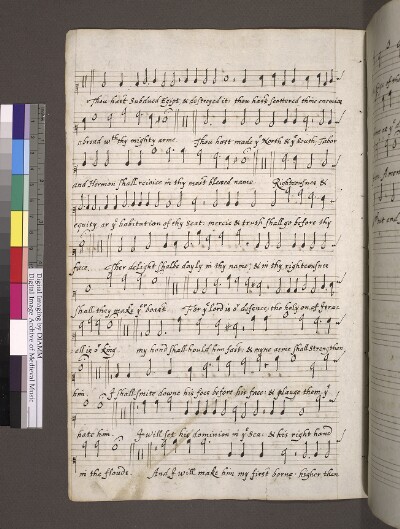 Thou hart Subdued Egipt & destroyed it: thou hast scattered thine enemies
abroad wth thy mighty arme. Thou hast made ye North & ye South: Tabor
and Hermon shall reioice in thy most blessed name. Righteousnes &
equity ar ye habitation of thy Seat: mercie & truth shall go before thy
face. Ther delight shalbe dayly in thy name: & in thy righteousnes
shall they make yr boast. For ye lord is or defence: the holy on of Isra=
ell is or King. my hand shall hould him fast: & myne arme shall strengthen
him. I shall smite downe his foes before his face: & plauge them yt
hate him. I will set his dominion in ye Sea: & his right hand
in the flouds. And I will make him my first borne: higher then
Digital Imaging by DIAMM
Digital Image Archive of Medieval Music